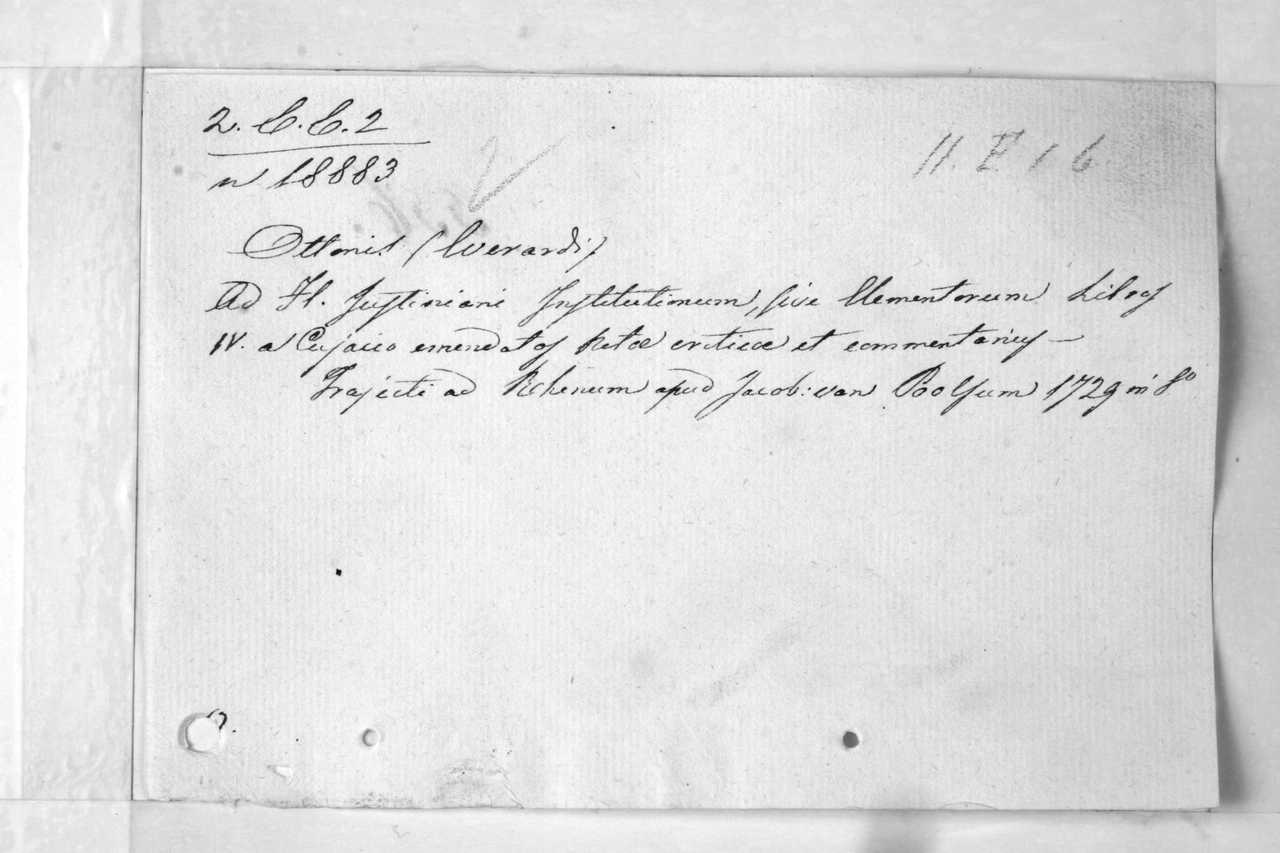 2. C. C. 2
n 18883
11. E 1 6
Ottonis (Everardi)
Ad Fl. Justiniani Institutionum, sive Elementorum Libros
IV. a Cujacio emendatos Notæ criticæ et commentarius —
Trajecti ad Rhenum apud Jacob: van Poolsum 1729 in 8o